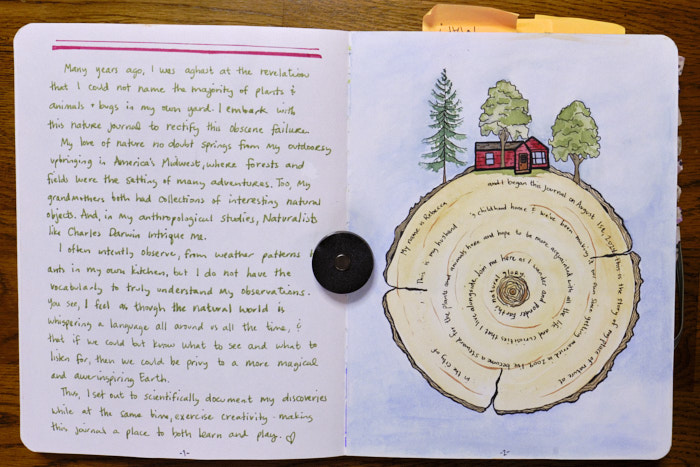 Many years ago, I was aghast at the revelation
that I could not name the majority of plants &
animals + bugs in my own yard. I embark with
this nature journal to rectify this obscene failure.
My love of nature no doubt springs from my outdoorsy
upbringing in America's Midwest, where forests and
fields were the setting of many adventures. Too, my
grandmothers both had collections of interesting natural
objects. And, in my anthropological studies, Naturalists
like Charles Darwin intrigue me.
I often intently observe, from weather patterns
ants in my own kitchen, but I do not have the
vocabulary to truly understand my observations.
You see, I feel as though the natural world is
whispering a language all around us all the time, &
that if we could but know what to see and what to
listen for, then we could be privy to a more magical
and awe-inspiring Earth.
Thus, I set out to scientifically document my discoveries
while at the same time, exercise creativity - making
this journal a place to both learn and play. ♡
-1-
My name is Rebecca and I began this journal on August 15th, This is the story of my place of nature at
in the city of
This is my husband 's childhood home & we've been making it our own since getting married in 2007. I've become a steward for the plants and animals here and hope to be more acquainted with all the life and curiosities that live alongside him & me here as I wander and ponder Earth's
natural glory.
-2-